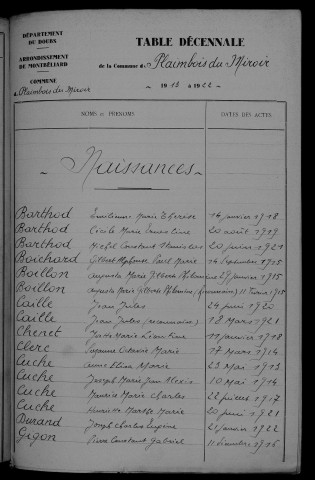 DÉPARTEMENT
DU DOUBS
ARRONDISSEMENT
DE MONTBÉLIARD
COMMUNE
d Plaimbois du Miroir
TABLE DÉCENNALE
de la Commune d Plaimbois du Miroir
1913 à 1922
NOMS ET PRÉNOMS DATES DES ACTES
Naissances
Barthod Marie Thérèse 14 janvier 1918
Barthod Cécile Marie Ernestine 20 août 1919
Barthod Michel Constant Stanislas 20 janvier 1921
Boichard Gilbert Alphonse Paul Marie 14 Septembre 1915
Boillon Augusta Marie Philomène 29 janvier 1915
Boillon Augusta Marie Philomène 11 1915
Caille Jean Jules 24 juin 1920
Caille Jean Jules (reconnaissance) 12 Mars 1921
Chenet Marie 11 janvier 1918
Clerc Suzanne Marie 17 Mars 1914
Cuche Marie 23 Mai 1913
Cuche Joseph Marie Jean Alexis 10 Mai 1914
Cuche Maurice Marie Charles 22 juillet 1917
Cuche Henriette Marthe Marie 20 juin 1921
Durand Joseph Charles Eugène 21 janvier 1922
Gigon Pierre Constant Gabriel 11 Décembre 1916